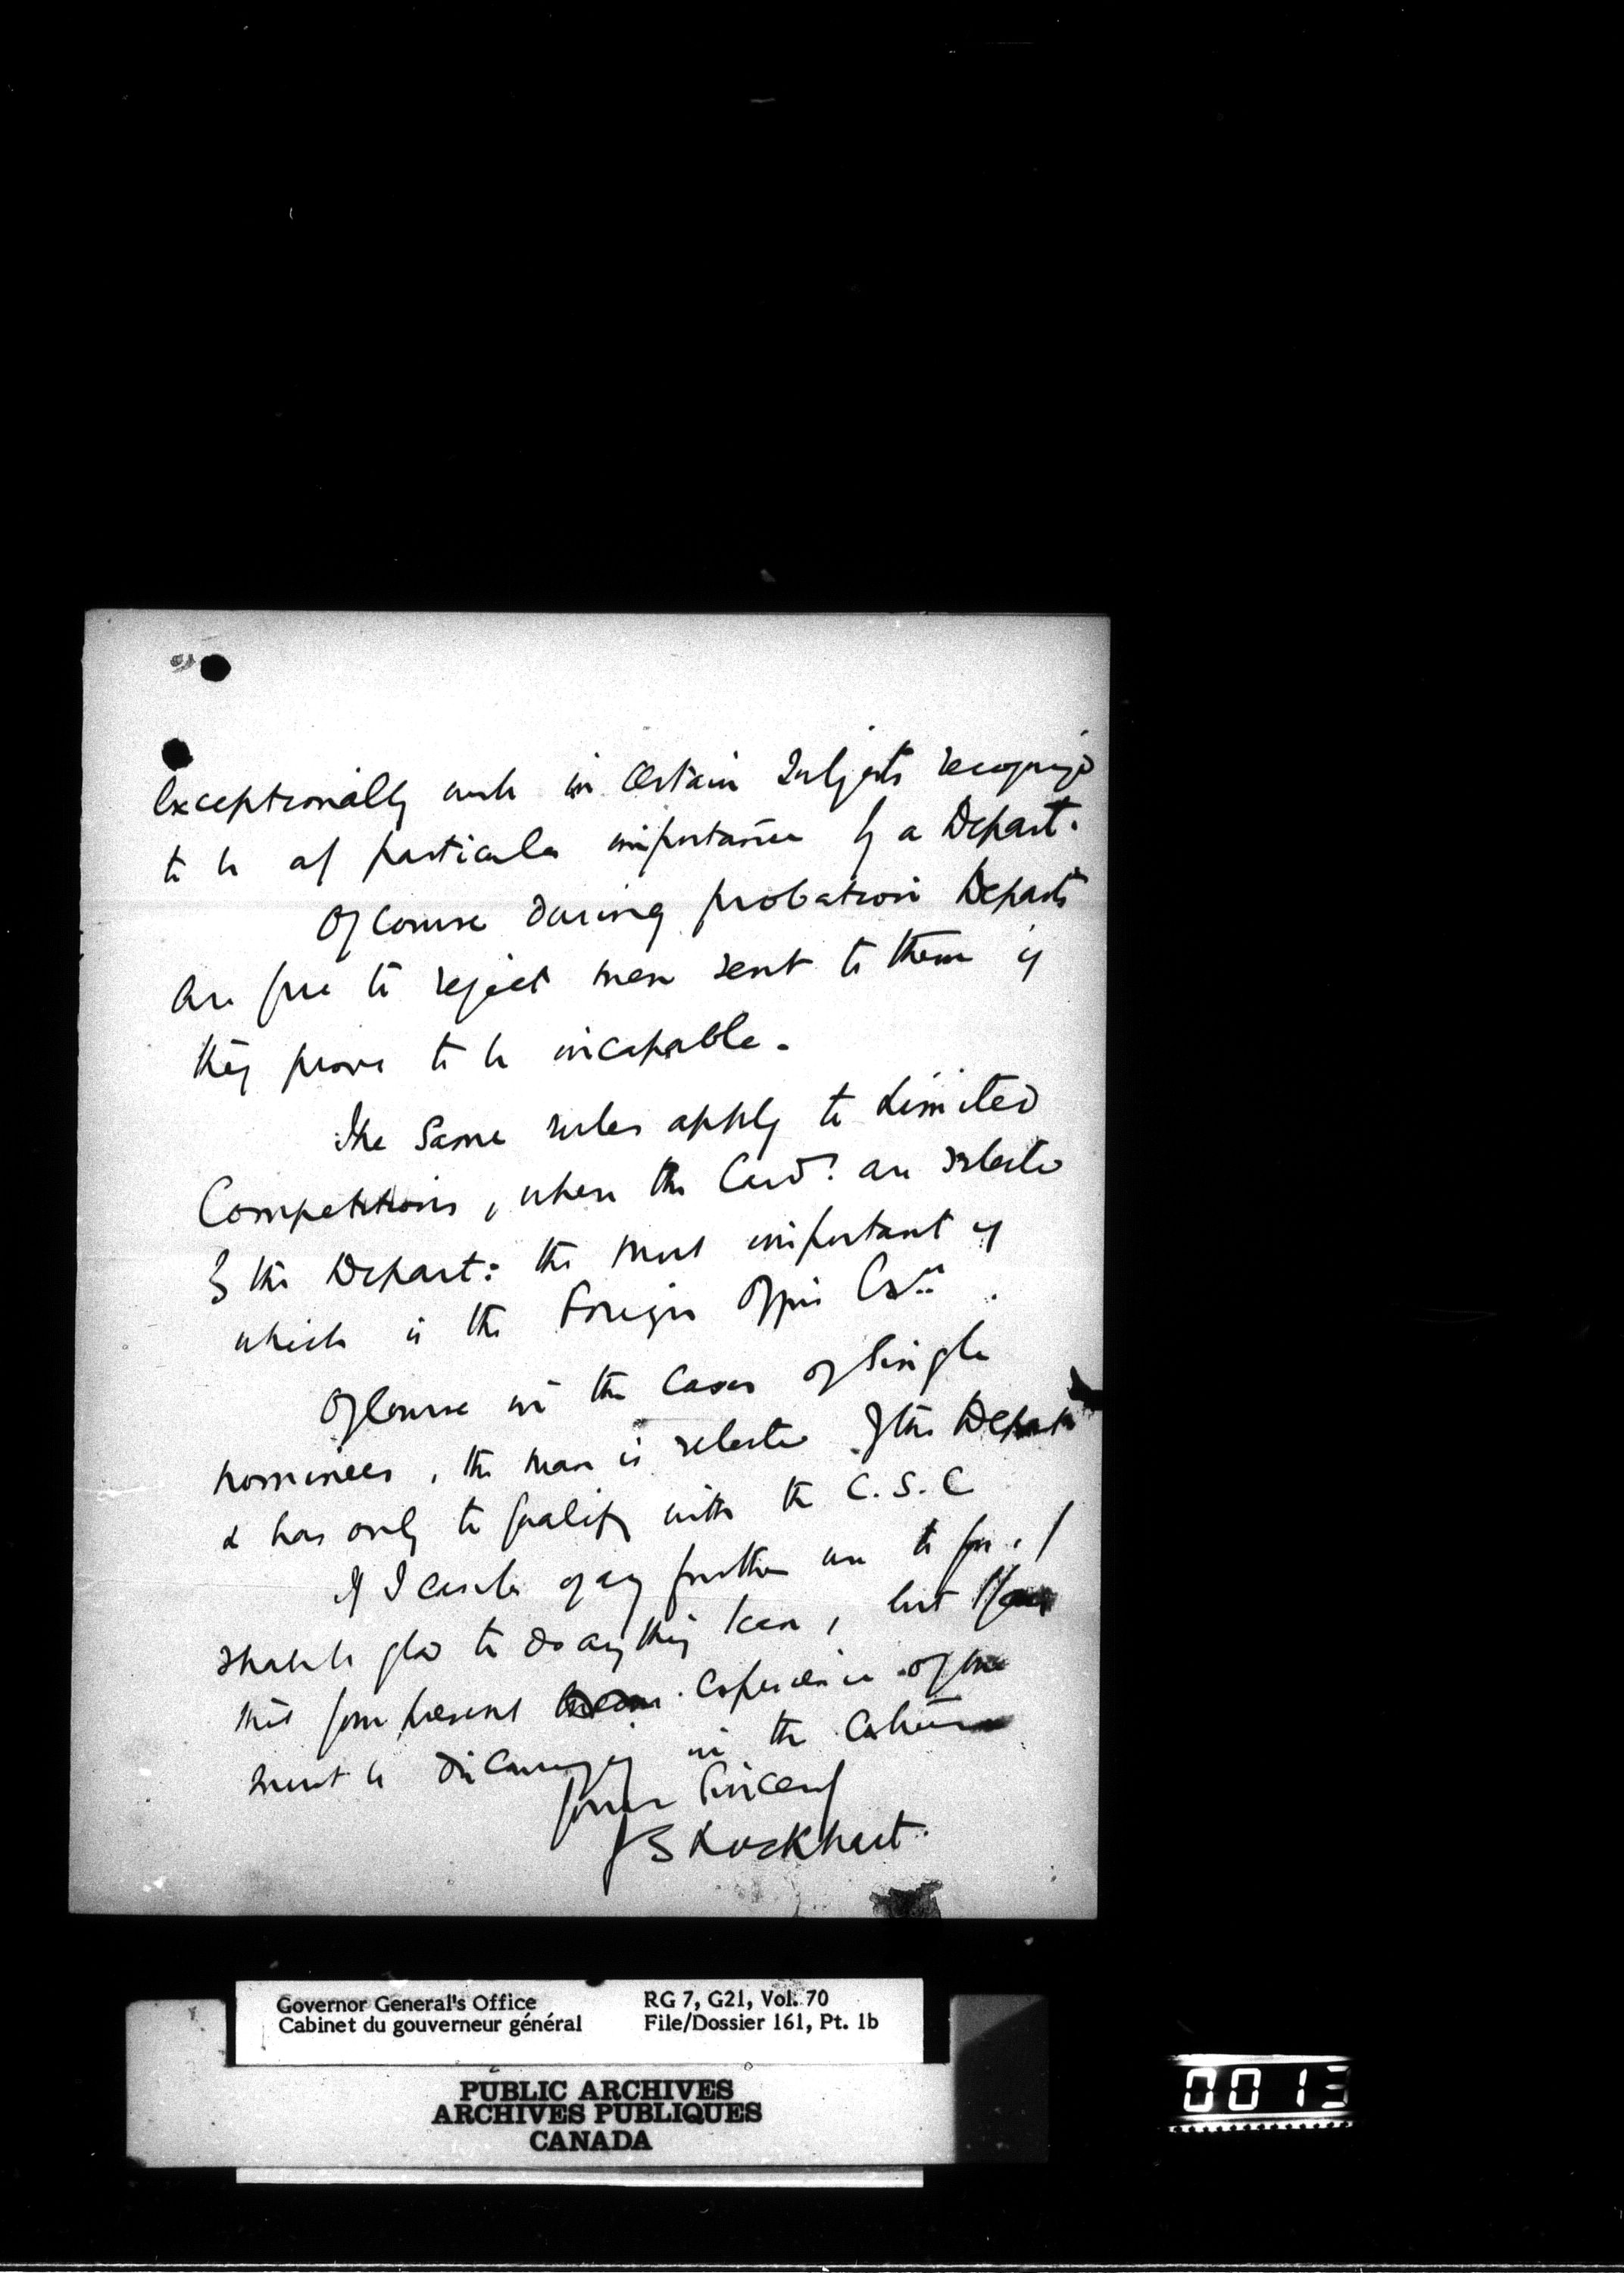 exceptionally in certain subjects recognized
to be of particular importance by a Depart.
Of course during probation Departs
are free to reject men sent to them if
they prove to be incapable.
The same rules apply to Limited
Competitions, where the Cand: are selected
by the Depart: the most important of
which is the Foreign Office
Of course in the cases of Single
nominees, the man is selected by the Depart
& has only to qualify with the C.S.C
If I can be of any further use to you, I
shall be glad to do anything I can, but
this your present experience of
must be discouraging in the
Yours Sincerely
Lockhart.
Governor General's Office
Cabinet du gouverneur général
RG 7, G21, Vol. 70
File/Dossier 161, Pt. 1b
PUBLIC ARCHIVES
ARCHIVES PUBLIQUES
CANADA
0013